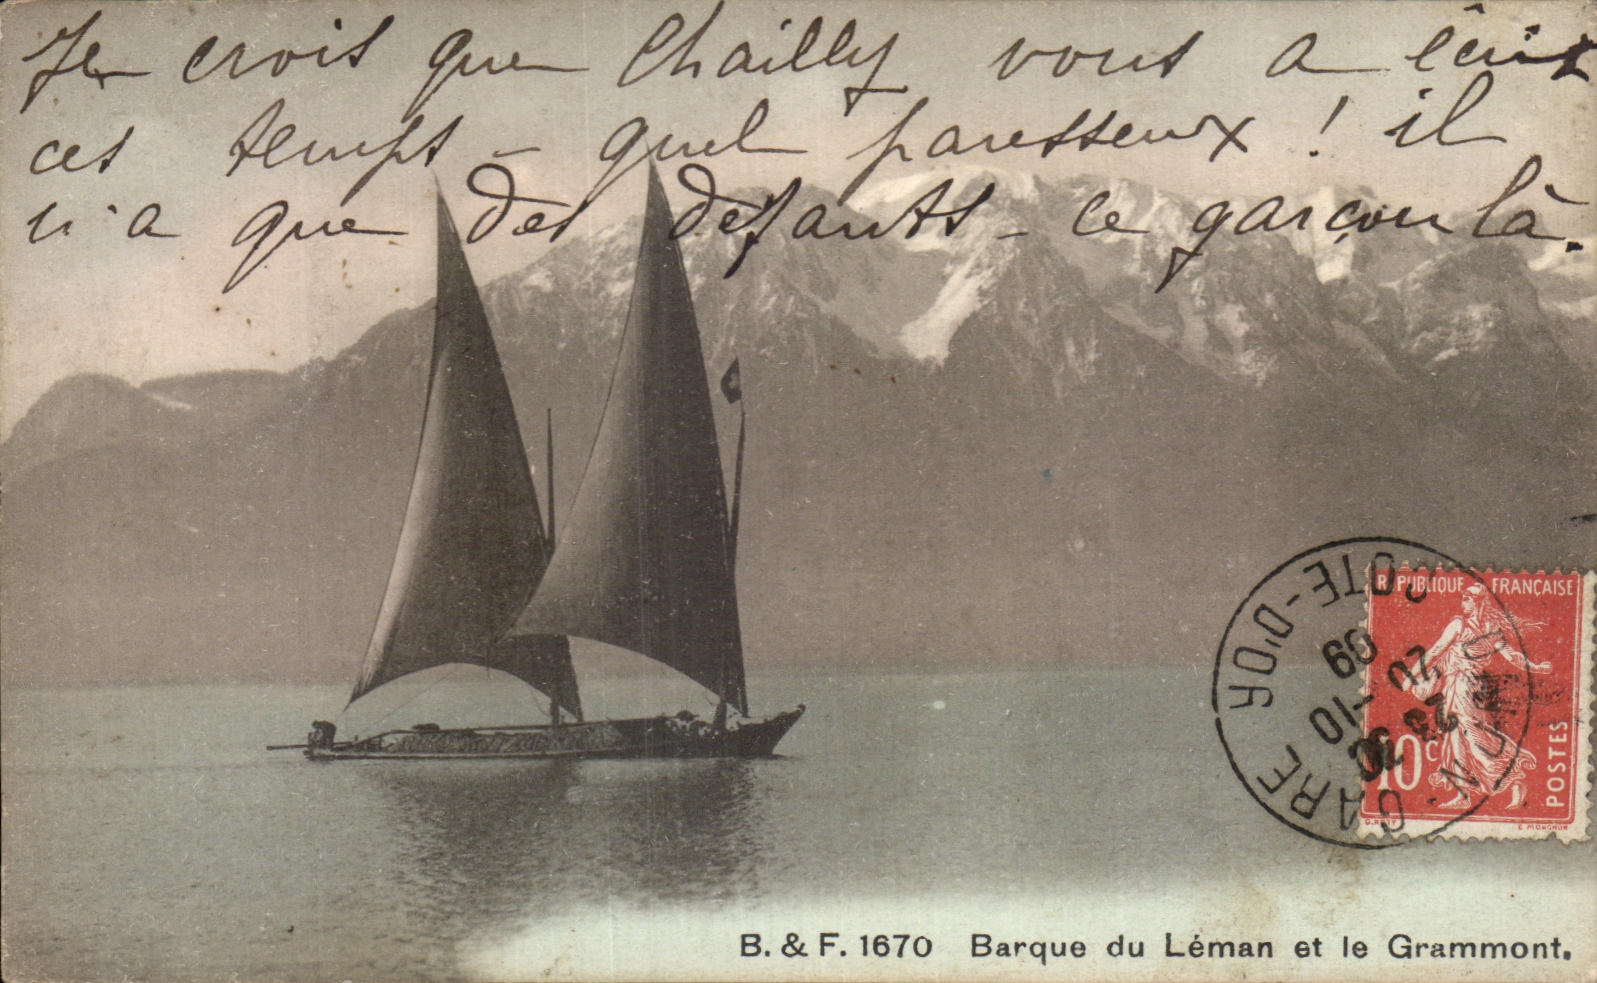 Je crois que Chailly vous a écrit
ces temps - quel paresseux ! il
n'a que des défauts - ce garçon là.
RÉPUBLIQUE FRANÇAISE
10c
POSTES
E. MOUCHON
GARE
COTE-D'OR
20 -10
09
B. & F. 1670 Barque du Léman et le Grammont.